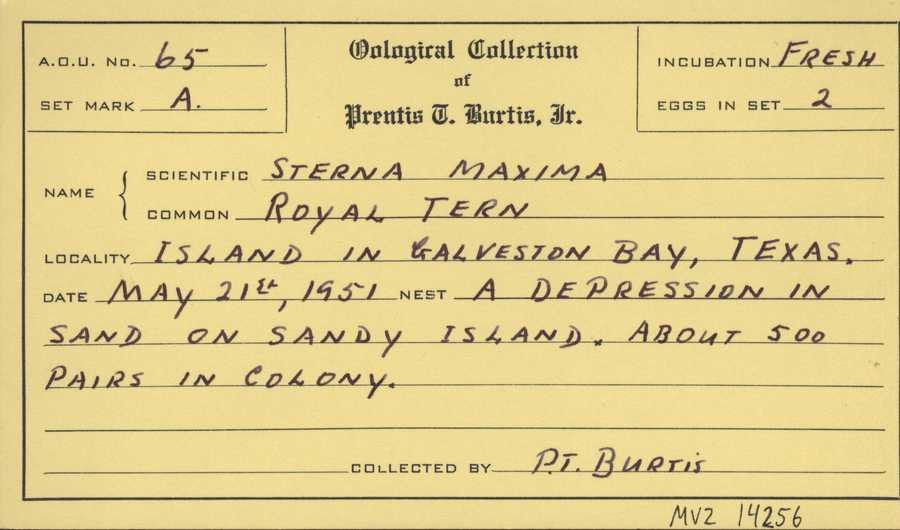 A.O.U. No. 65
SET MARK A.
Oological Collection
of
Prentis T. Burtis, Jr.
INCUBATION FRESH
EGGS IN SET 2
NAME
SCIENTIFIC STERNA MAXIMA
COMMON ROYAL TERN
LOCALITY ISLAND IN GALVESTON BAY, TEXAS.
DATE MAY 21st, 1951 NEST A DEPRESSION IN
SAND ON SANDY ISLAND. ABOUT 500
PAIRS IN COLONY.
COLLECTED BY P.T. BURTIS
MVZ 14256